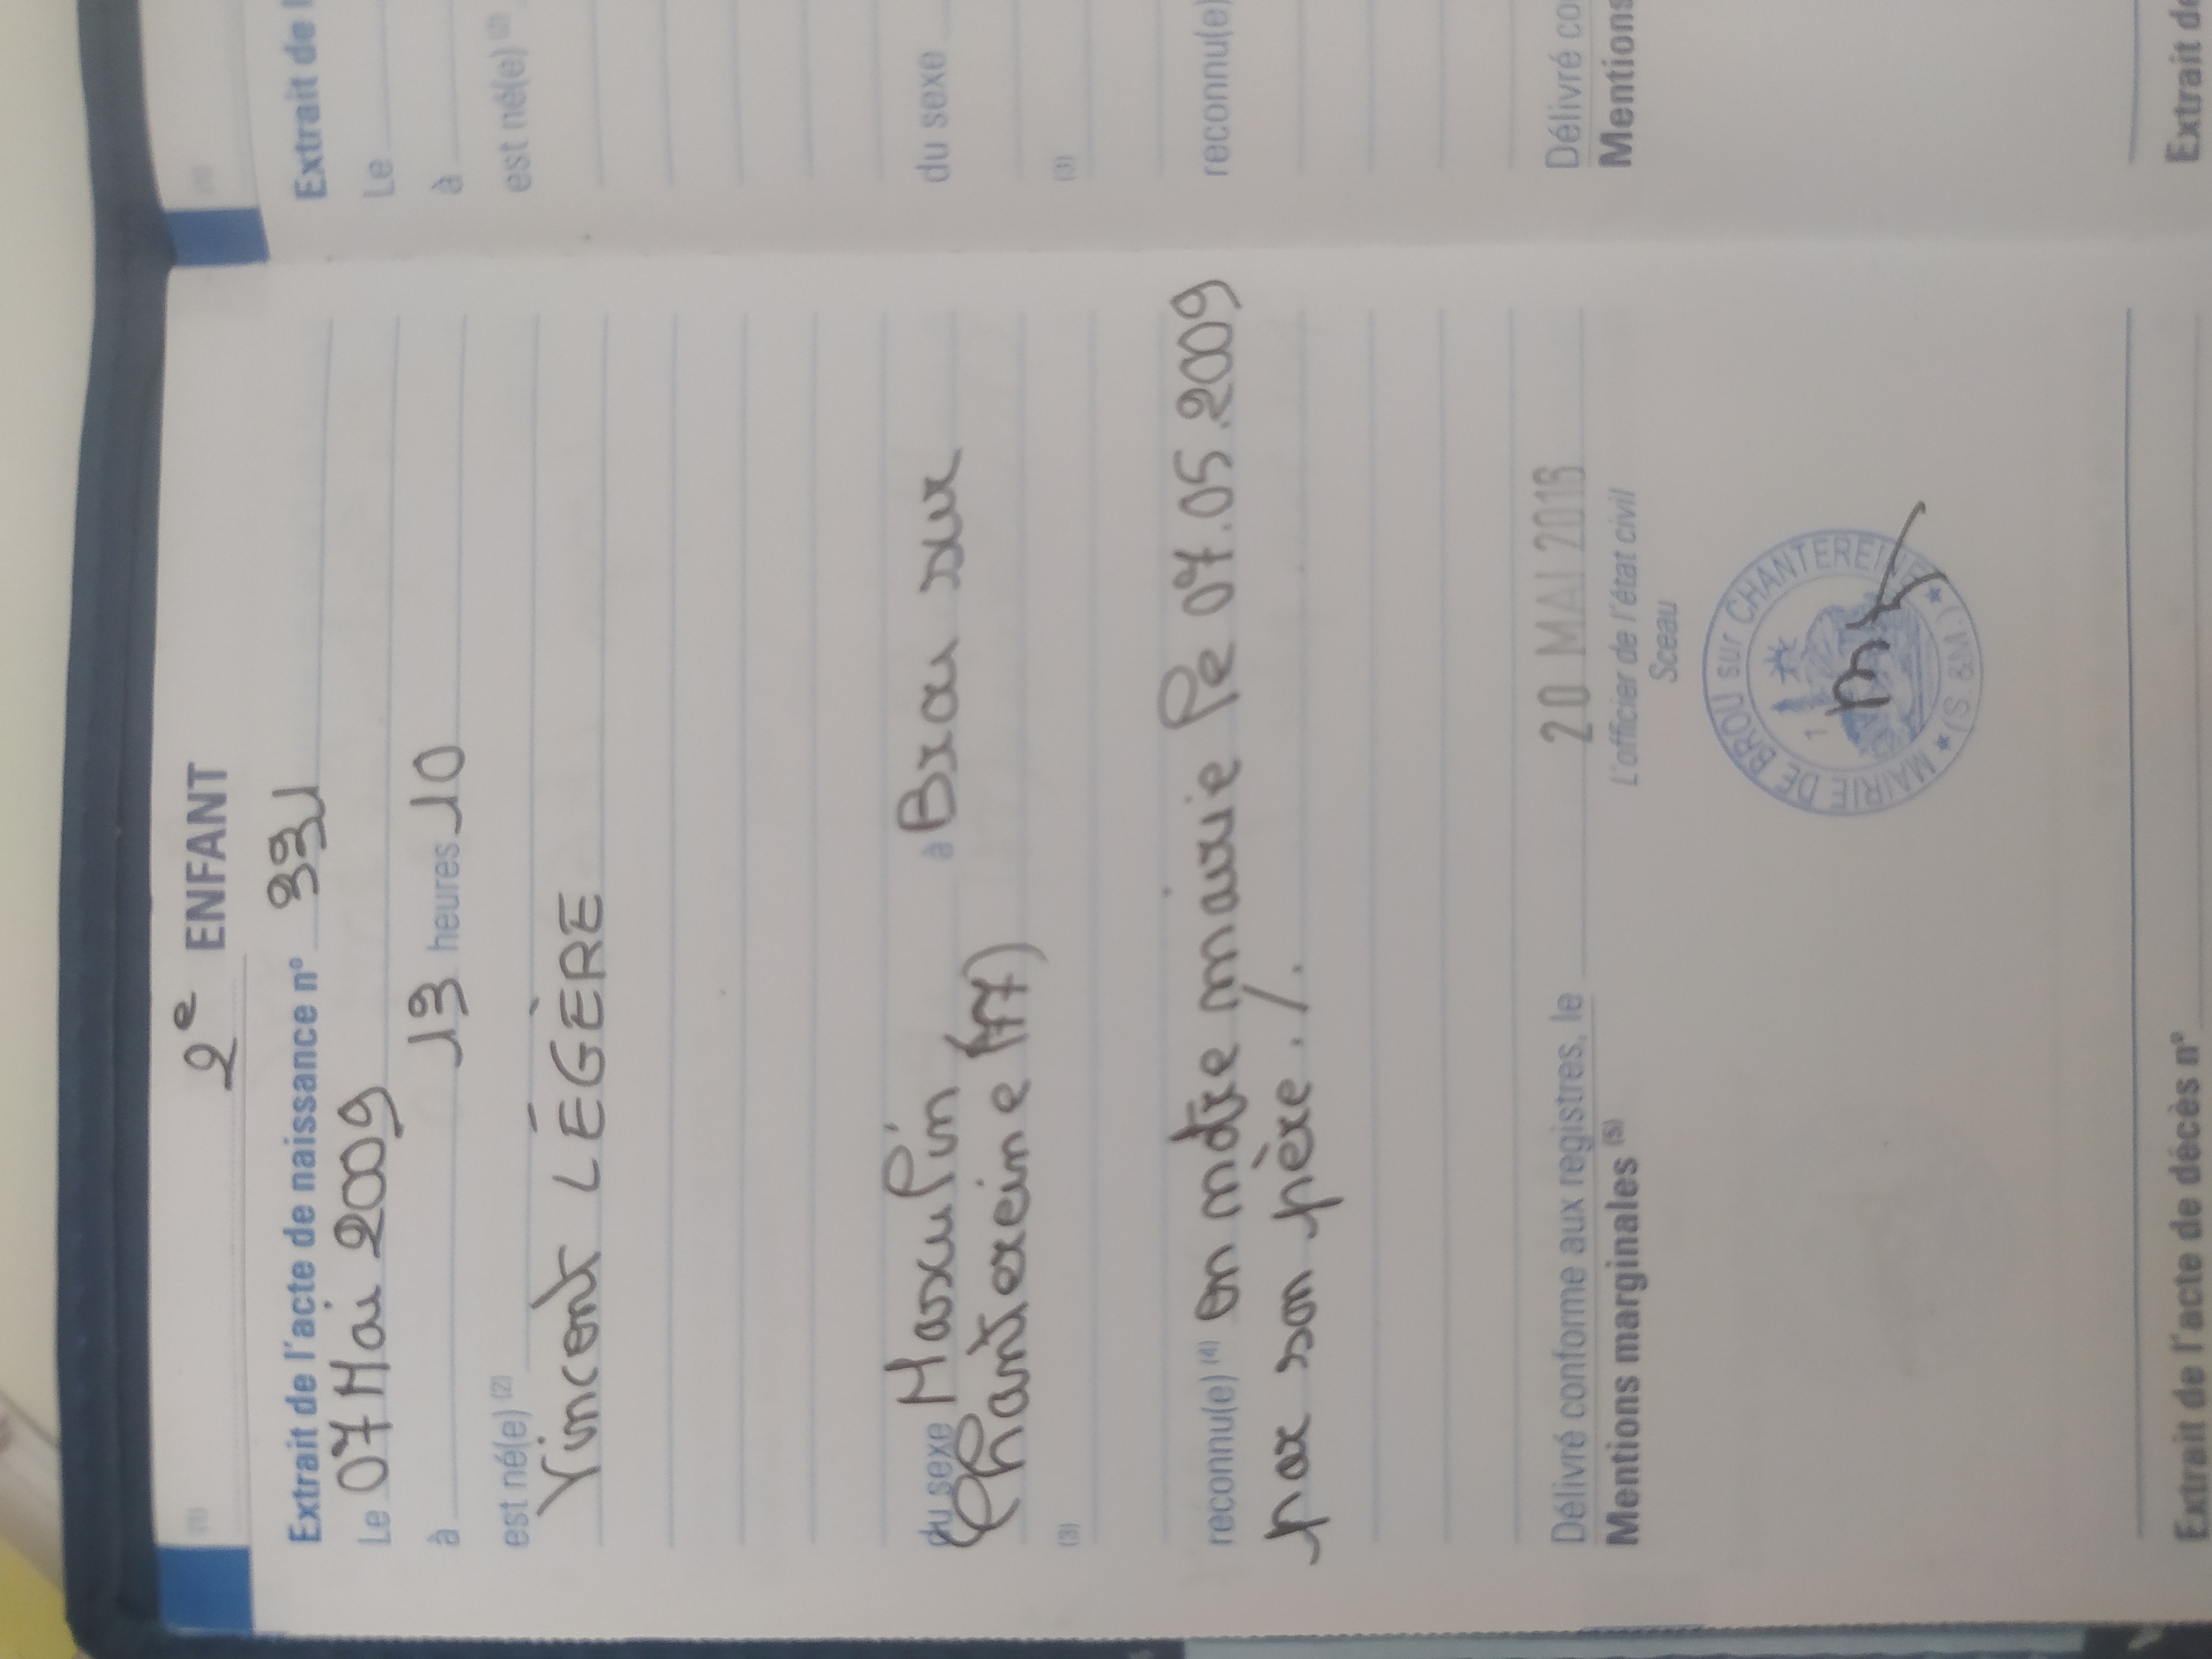 (1)
2e ENFANT
Extrait de l'acte de naissance n° 331
Le 07 Mai 2009
à 13 heures 10
est né(e) (2)
Vincent LÉGÈRE
du sexe Masculin à Brou sur
Chantereine (77)
(3)
reconnu(e) (4) en notre mairie le 07.05.2009
par son père./.
Délivré conforme aux registres, le 20 MAI 2016
Mentions marginales (5)
L'officier de l'état civil
Sceau
MAIRIE DE BROU sur CHANTEREINE
★ (S & M) ★
Extrait de l'acte de décès n°
(1)
Extrait de l
Le
à
est né(e) (2)
du sexe
(3)
reconnu(e)
Délivré co
Mentions
Extrait de